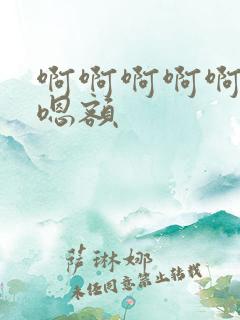 啊啊啊啊啊
嗯额
萨琳娜
未经同意禁止转载